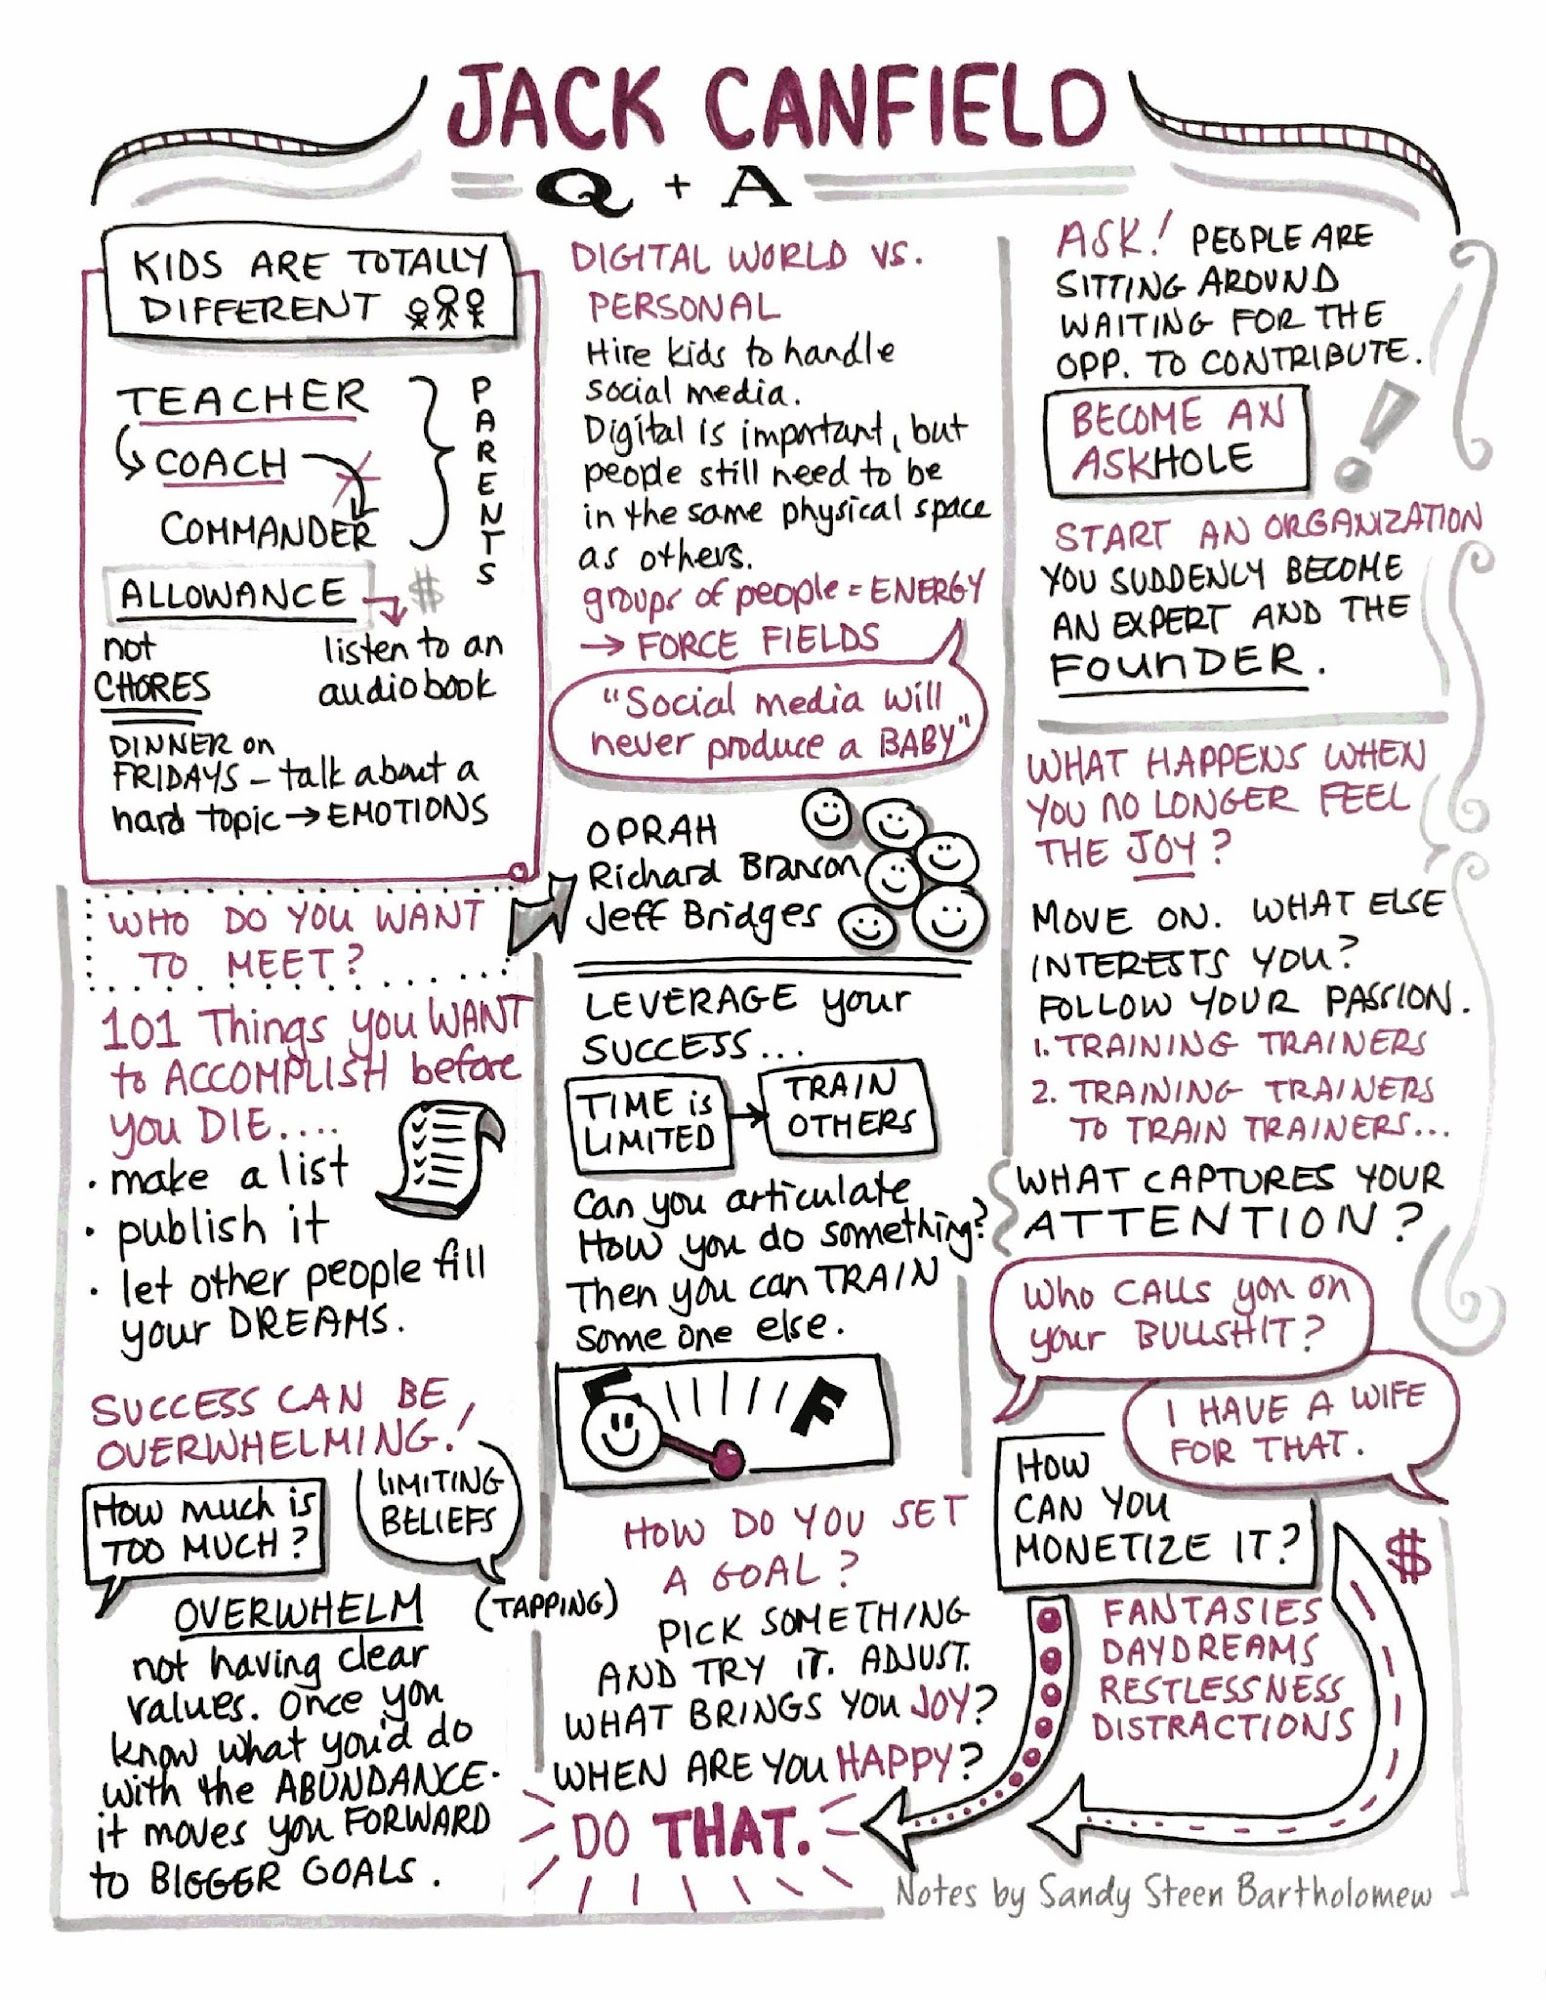 JACK CANFIELD
Q + A
KIDS ARE TOTALLY
DIFFERENT
TEACHER
COACH
COMMANDER
PARENTS
ALLOWANCE
$
not
CHORES
listen to an
audiobook
DINNER on
FRIDAYS – talk about a
hard topic → EMOTIONS
WHO DO YOU WANT
TO MEET?
101 Things you WANT
to ACCOMPLISH before
you DIE....
• make a list
• publish it
• let other people fill
your DREAMS.
SUCCESS CAN BE
OVERWHELMING!
HOW MUCH iS
TOO MUCH?
LIMITING
BELIEFS
(TAPPING)
OVERWHELM
not having clear
values. Once you
know what you'd do
with the ABUNDANCE.
it moves you FORWARD
to BIGGER GOALS.
DIGITAL WORLD VS.
PERSONAL
Hire kids to handle
social media.
Digital is important, but
people still need to be
in the same physical space
as others.
groups of people = ENERGY
→ FORCE FIELDS
"Social media will
never produce a BABY"
OPRAH
Richard Branson
Jeff Bridges
LEVERAGE your
SUCCESS...
TIME iS
LIMITED
TRAIN
OTHERS
Can you articulate
How you do something?
Then you can TRAIN
some one else.
E
F
HOW DO YOU SET
A GOAL?
PICK SOMETHING
AND TRY IT. ADJUST.
WHAT BRINGS YOU JOY?
WHEN ARE YOU HAPPY?
DO THAT.
ASK! PEOPLE ARE
SITTING AROUND
WAITING FOR THE
OPP. TO CONTRIBUTE.
BECOME AN
ASKHOLE
!
START AN ORGANIZATION
YOU SUDDENLY BECOME
AN EXPERT AND THE
FOUNDER.
WHAT HAPPENS WHEN
YOU NO LONGER FEEL
THE JOY?
MOVE ON. WHAT ELSE
INTERESTS YOU?
FOLLOW YOUR PASSION.
1. TRAINING TRAINERS
2. TRAINING TRAINERS
TO TRAIN TRAINERS...
WHAT CAPTURES YOUR
ATTENTION?
Who CALLS you on
your BULLSHIT?
I HAVE A WIFE
FOR THAT.
HOW
CAN YOU
MONETIZE IT?
$
FANTASIES
DAYDREAMS
RESTLESSNESS
DISTRACTIONS
Notes by Sandy Steen Bartholomew